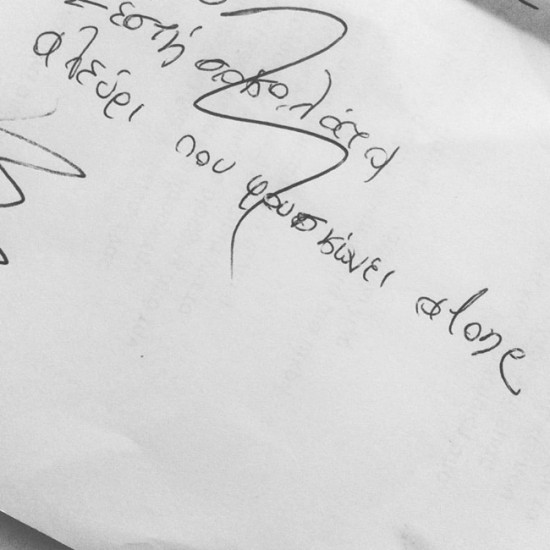 Ζεστή σοκολάτα
αλεύρι που φουσκώνει alone